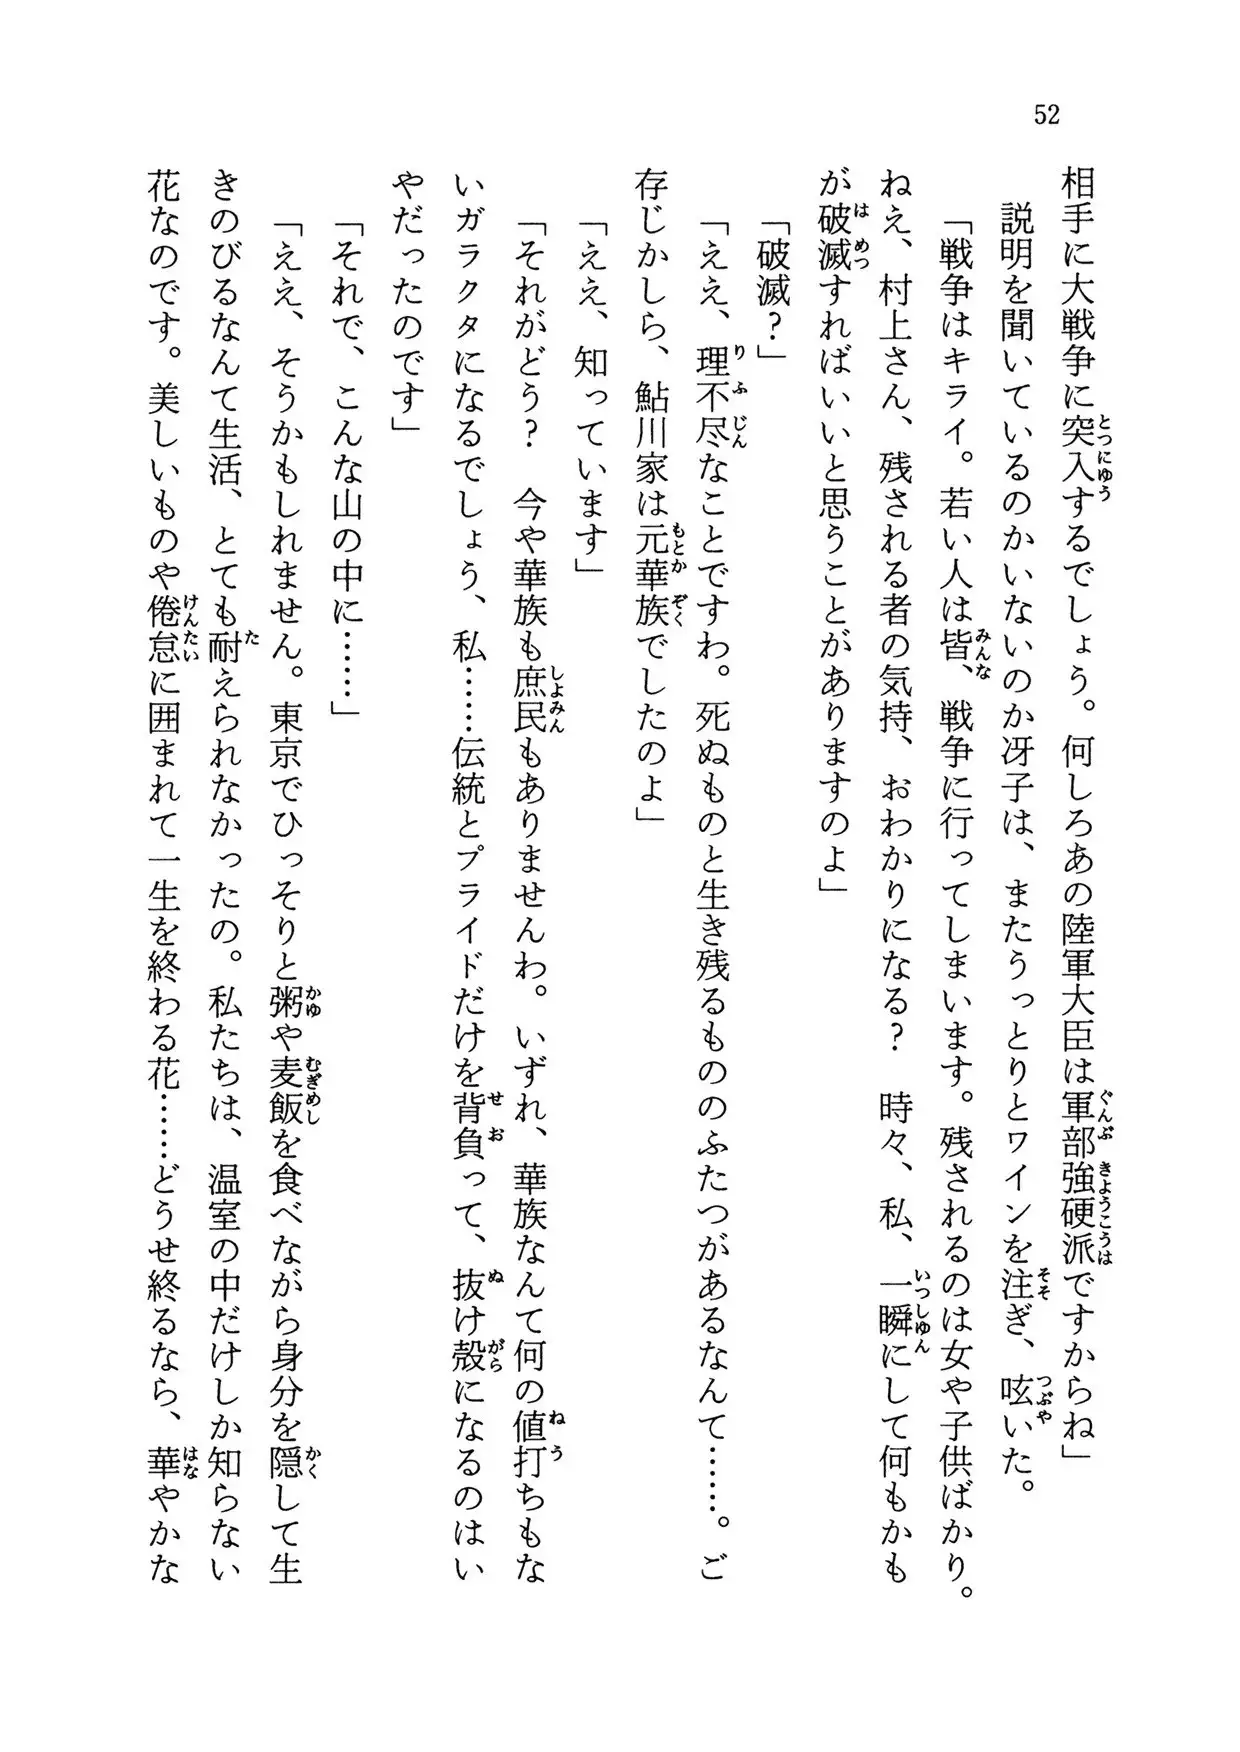 52
相手に大戦争に突入するでしょう。何しろあの陸軍大臣は軍部強硬派ですからね」
説明を聞いているのかいないのか冴子は、またうっとりとワインを注ぎ、呟いた。
「戦争はキライ。若い人は皆、戦争に行ってしまいます。残されるのは女や子供ばかり。
ねえ、村上さん、残される者の気持、おわかりになる？　時々、私、一瞬にして何もかも
が破滅すればいいと思うことがありますのよ」
「破滅？」
「ええ、理不尽なことですわ。死ぬものと生き残るもののふたつがあるなんて……。ご
存じかしら、鮎川家は元華族でしたのよ」
「ええ、知っています」
「それがどう？　今や華族も庶民もありませんわ。いずれ、華族なんて何の値打ちもな
いガラクタになるでしょう、私……伝統とプライドだけを背負って、抜け殻になるのはい
やだったのです」
「それで、こんな山の中に……」
「ええ、そうかもしれません。東京でひっそりと粥や麦飯を食べながら身分を隠して生
きのびるなんて生活、とても耐えられなかったの。私たちは、温室の中だけしか知らない
花なのです。美しいものや倦怠に囲まれて一生を終わる花……どうせ終るなら、華やかな